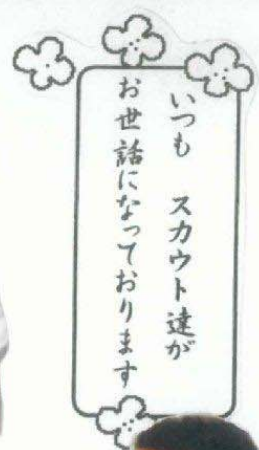 いつも　スカウト達が
お世話になっております